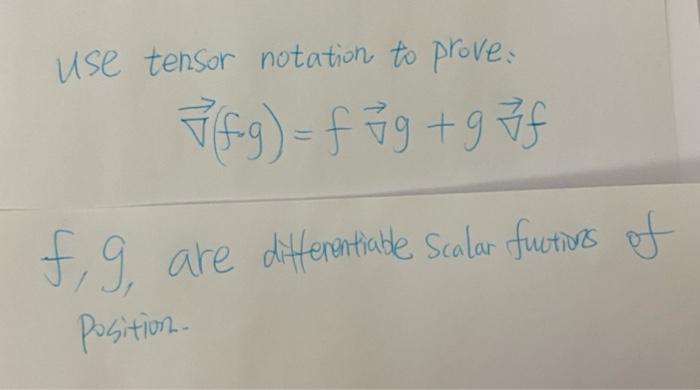 use tensor notation to prove:
∇⃗(f·g) = f ∇⃗g + g ∇⃗f
f, g, are differentiable Scalar fuctions of
Position.